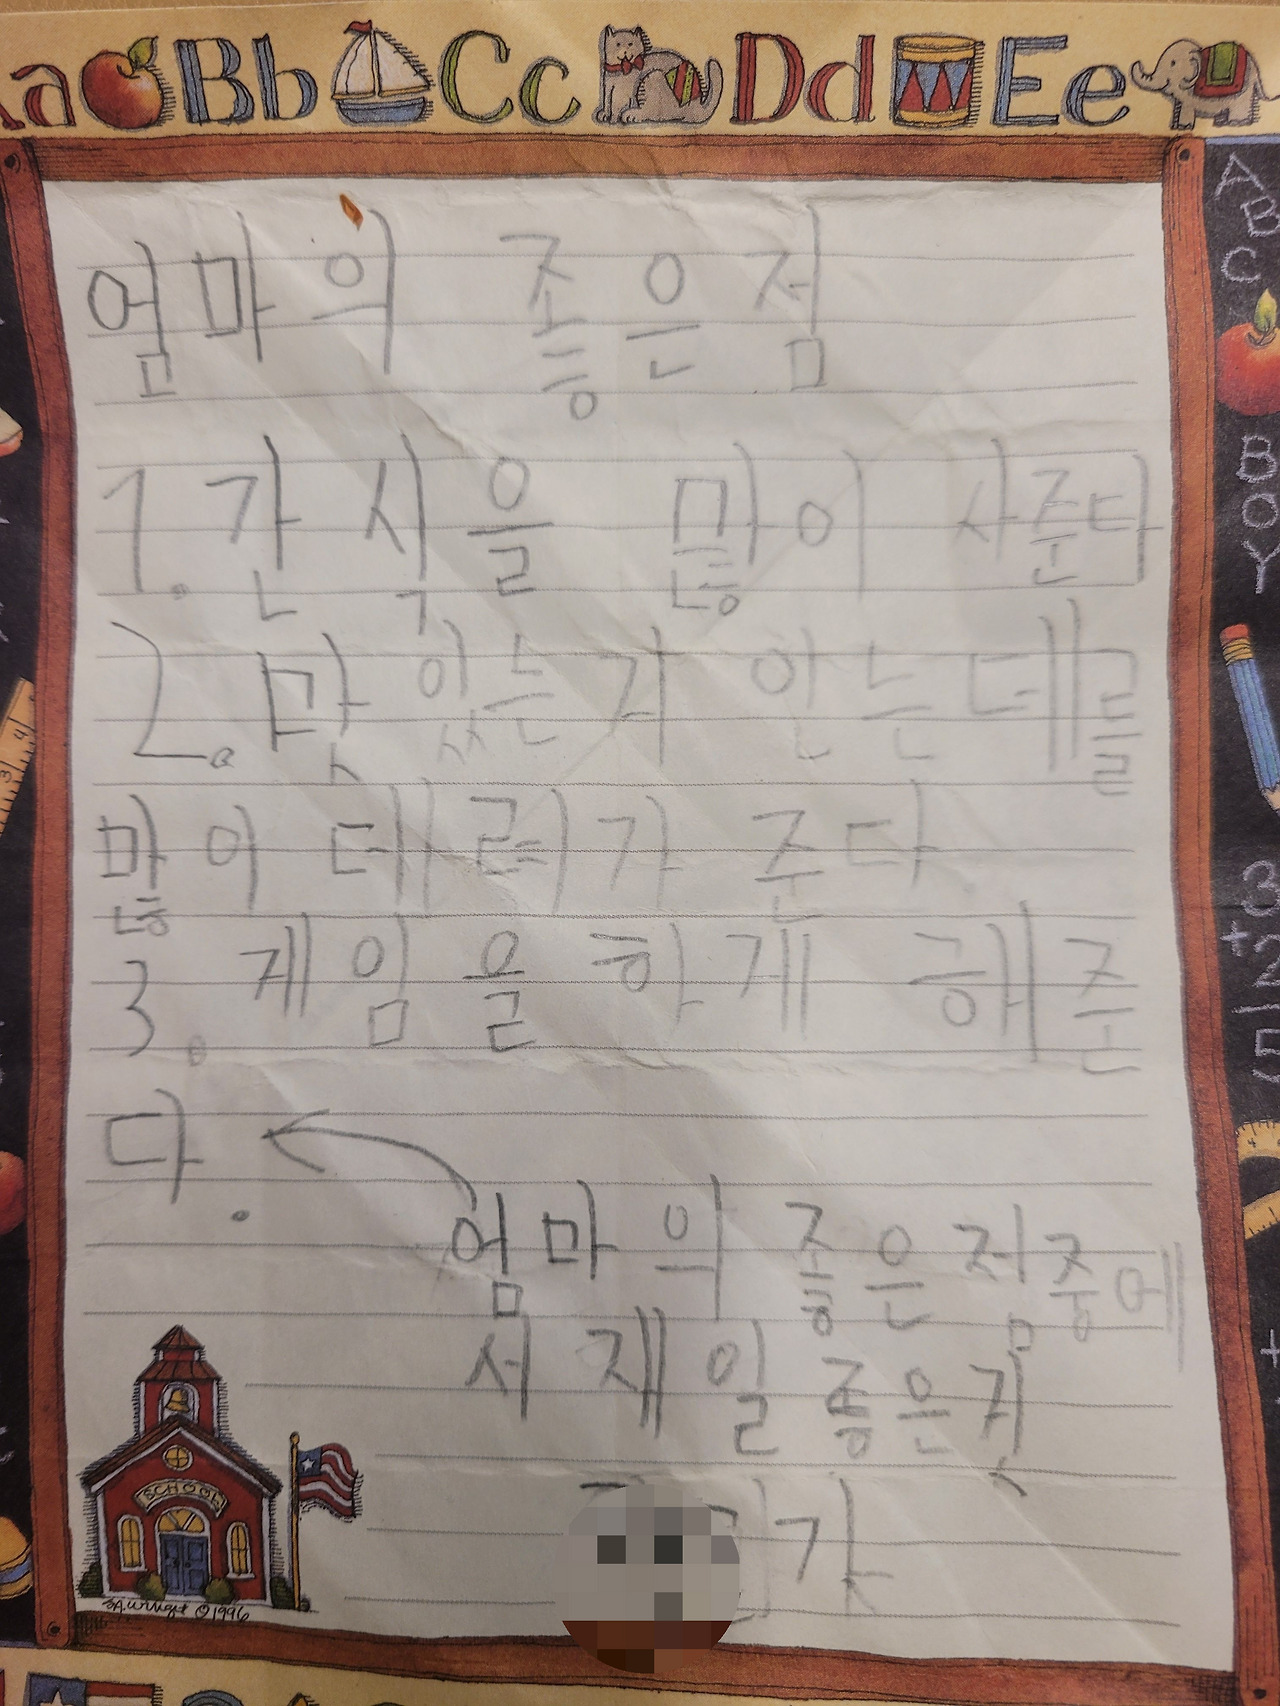 Aa Bb Cc Dd Ee
엄마의 좋은점
1. 간식을 많이 사준다
2. 맛있는거 있는데를
많이 데려가 준다.
3. 게임을 하게 해준
다.
엄마의 좋은점중에
서 제일 좋은것
A
B
C
B
O
Y
3
+2
5
SCHOOL
©1996